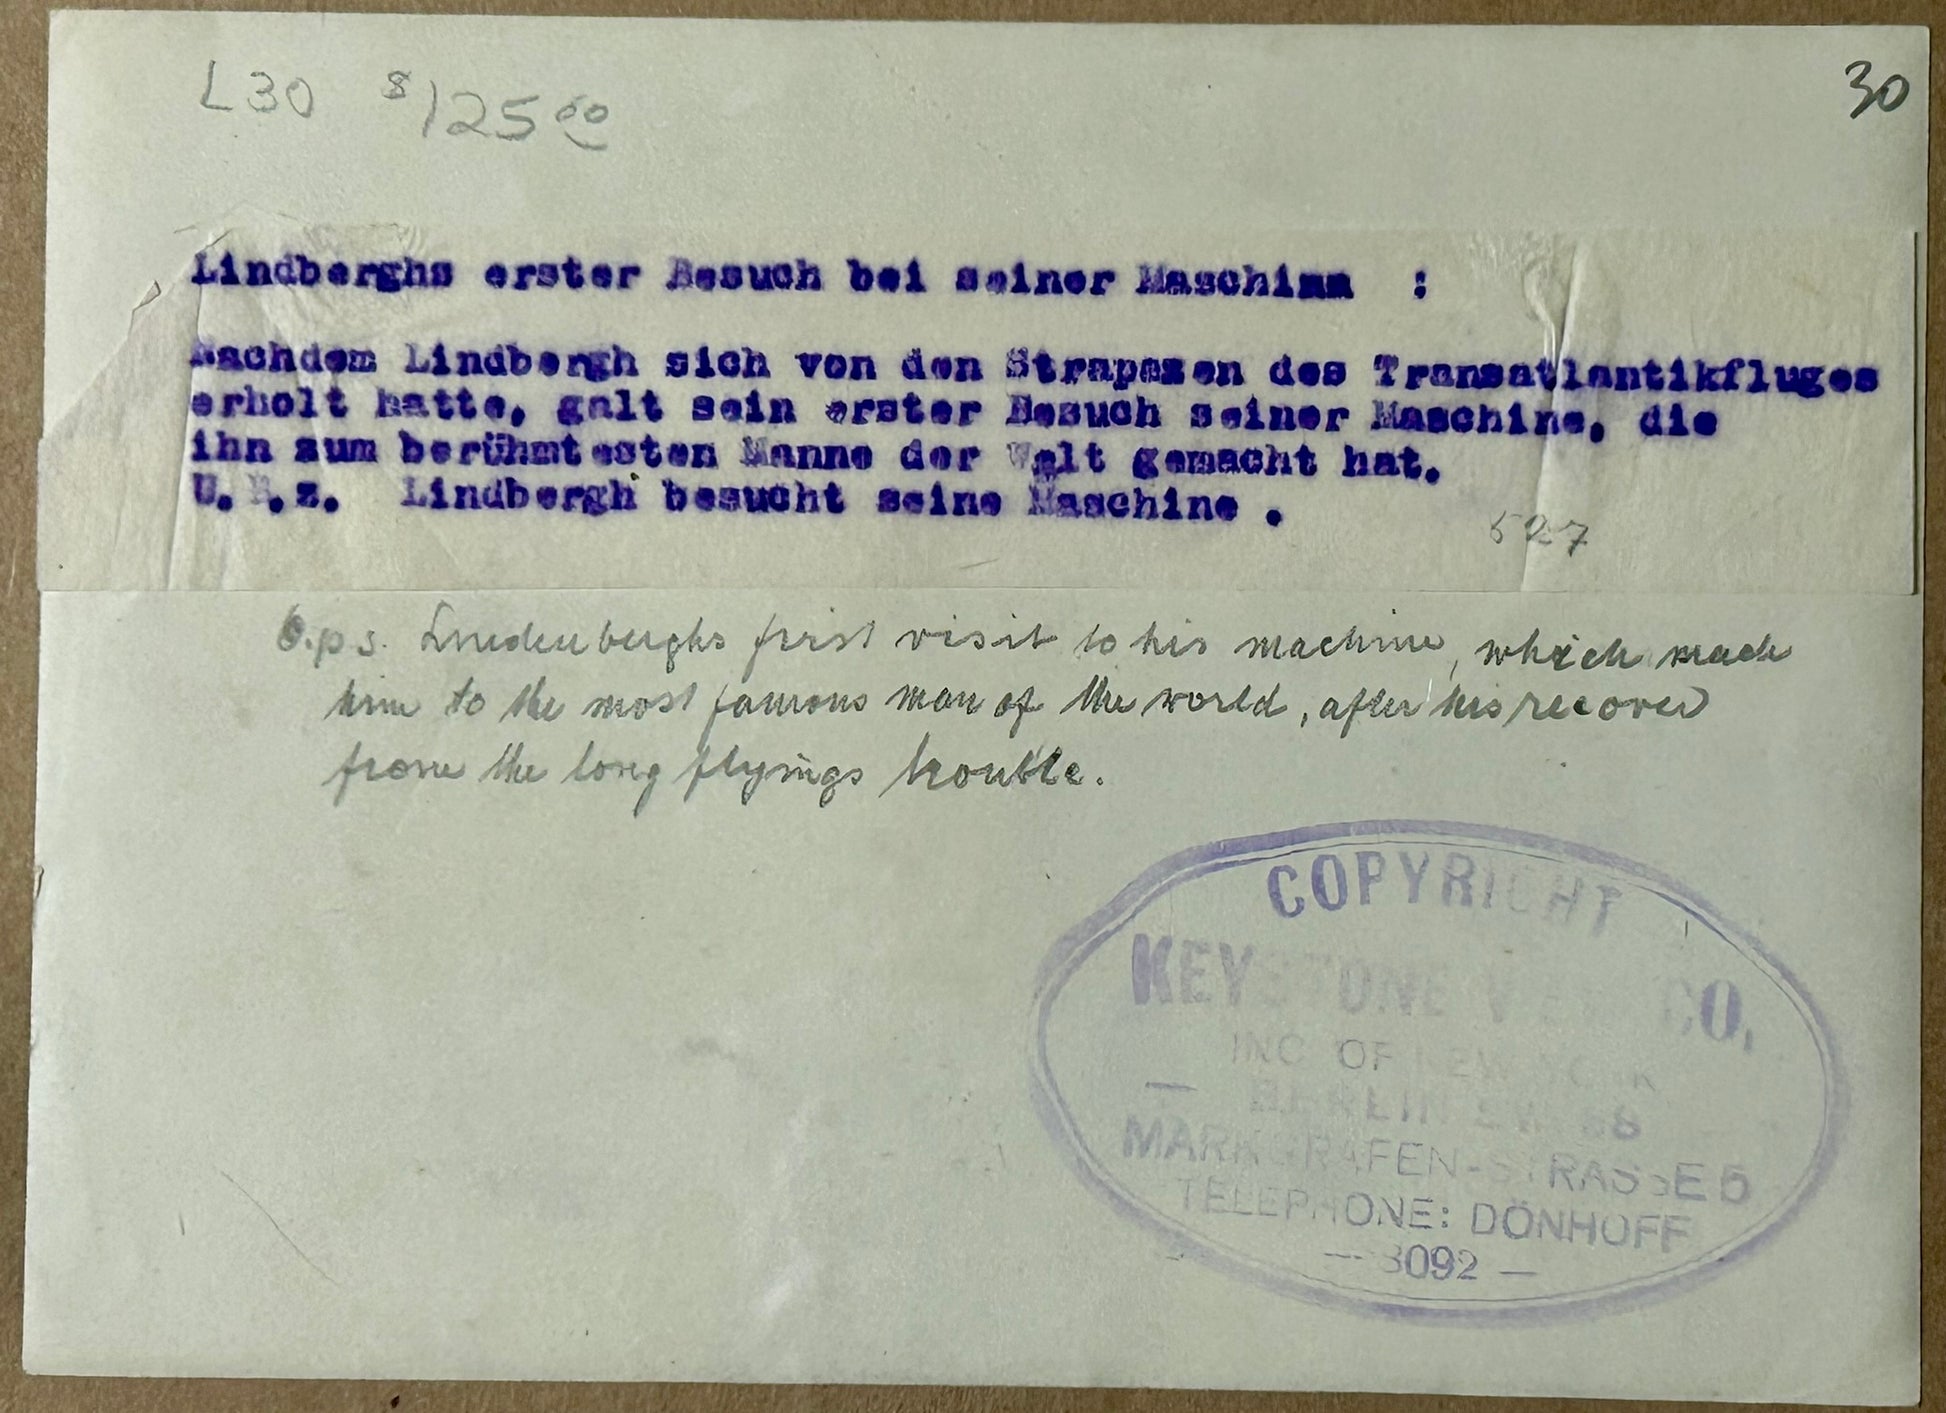 L30 $125 00
30
Lindberghs erster Besuch bei seiner Maschine :
Nachdem Lindbergh sich von den Strapazen des Transatlantikfluges
erholt hatte, galt sein erster Besuch seiner Maschine, die
ihn zum berühmtesten Manne der Welt gemacht hat.
U. B.z. Lindbergh besucht seine Maschine .
527
O.p s. Lindenberghs first visit to his machine, which made
him to the most famous man of the world, after his recover
from the long flyings trouble.
COPYRIGHT
KEYSTONE VIEW CO,
INC OF NEW YORK
— BERLIN SW 68
MARKGRAFEN-STRASSE 5
TELEPHONE: DÖNHOFF
— 3092 —